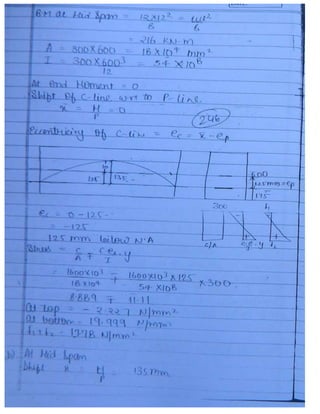 BM at Mid Span = 12×12²/8 = wl²/8
= 216 KN-m
A = 300×600 = 18×10⁴ mm²
I = 300×600³/12 = 54×10⁸
At End Moment = 0
Shift of C-line wrt to P-line
x = M/P = 0
246
Eccentricity of C-line = ec = x - ep
135
600
125mm=ep
175
300
ec = 0-125
= -125
125 mm below N.A
C/A
Stress = C/A ∓ C ec/I . y
= 1600×10³/18×10⁴ ∓ 1600×10³×125/54×10⁸ × 300
8.889 ∓ 11.11
At top = -2.227 N/mm²
At bottom = 19.999 N/mm²
f1+f2 = 17.78 N/mm²
At Mid Span
Shift x = M/P = 135mm